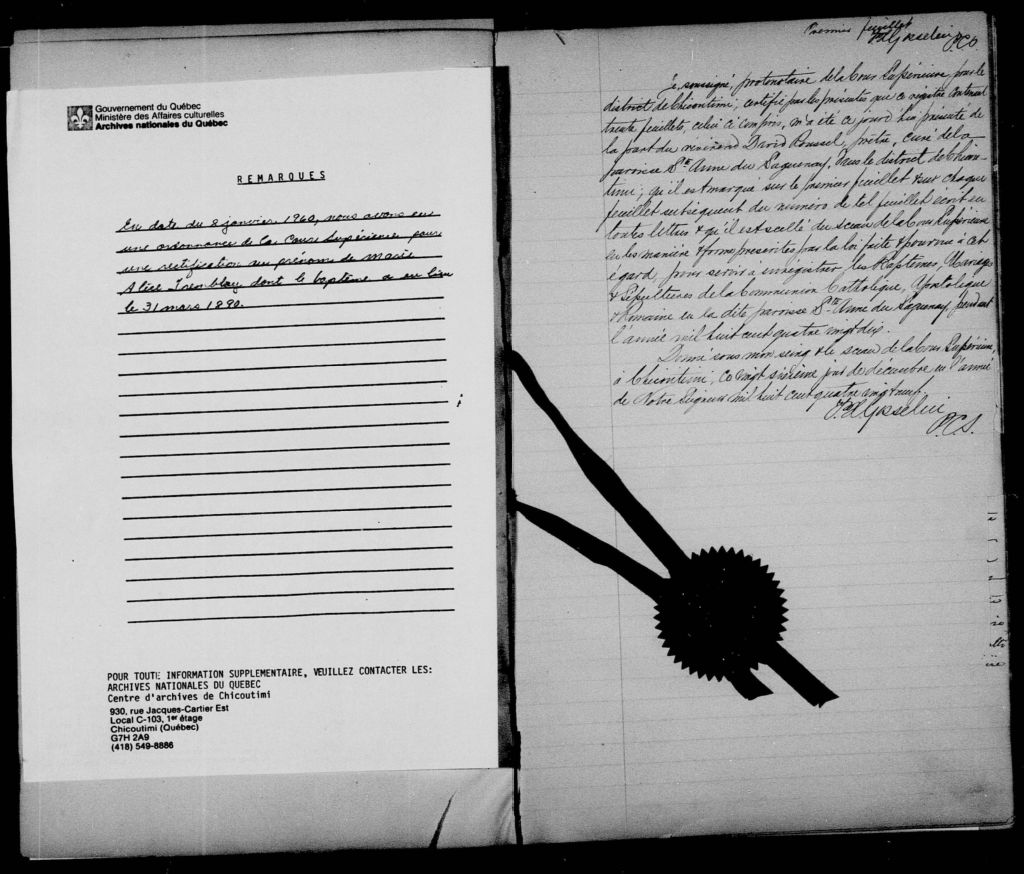 Gouvernement du Québec
Ministère des Affaires culturelles
Archives nationales du Québec
REMARQUES
En date du 8 janvier 1960, nous avons eu
une ordonnance de la Cour Supérieure pour
une rectification au prénom de Marie
Alice Tremblay dont le baptême a eu lieu
le 31 mars 1890
POUR TOUTE INFORMATION SUPPLEMENTAIRE, VEUILLEZ CONTACTER LES:
ARCHIVES NATIONALES DU QUEBEC
Centre d'archives de Chicoutimi
930, rue Jacques-Cartier Est
Local C-103, 1er étage
Chicoutimi (Québec)
G7H 2A9
(418) 549-8886
Premier feuillet
Gosselin
Je, soussigné, protonotaire de la Cour Supérieure, pour le
district de Chicoutimi, certifie par les présentes que ce registre contenant
trente feuillets, celui-ci compris, m'a été ce jourd'hui présenté de
la part du révérend David Roussel, prêtre, curé de la
paroisse Ste Anne du Saguenay, dans le district de Chicou-
timi; qu'il est marqué sur le premier feuillet & sur chaque
feuillet subséquent du numéro de tel feuillet écrit en
toutes lettres & qu'il est scellé du sceau de la Cour Supérieure
en la manière & forme prescrites par la loi faite & pourvue à cet
égard, pour servir à enregistrer les Baptêmes, Mariages
& Sépultures de la Communion Catholique, Apostolique
& Romaine en la dite paroisse Ste Anne du Saguenay, pendant
l'année mil huit cent quatre vingt dix.
Donné sous mon seing & le sceau de la Cour Supérieure,
à Chicoutimi, ce vingt sixième jour de décembre en l'année
de Notre Seigneur mil huit cent quatre vingt neuf.
Gosselin
P.C.S.